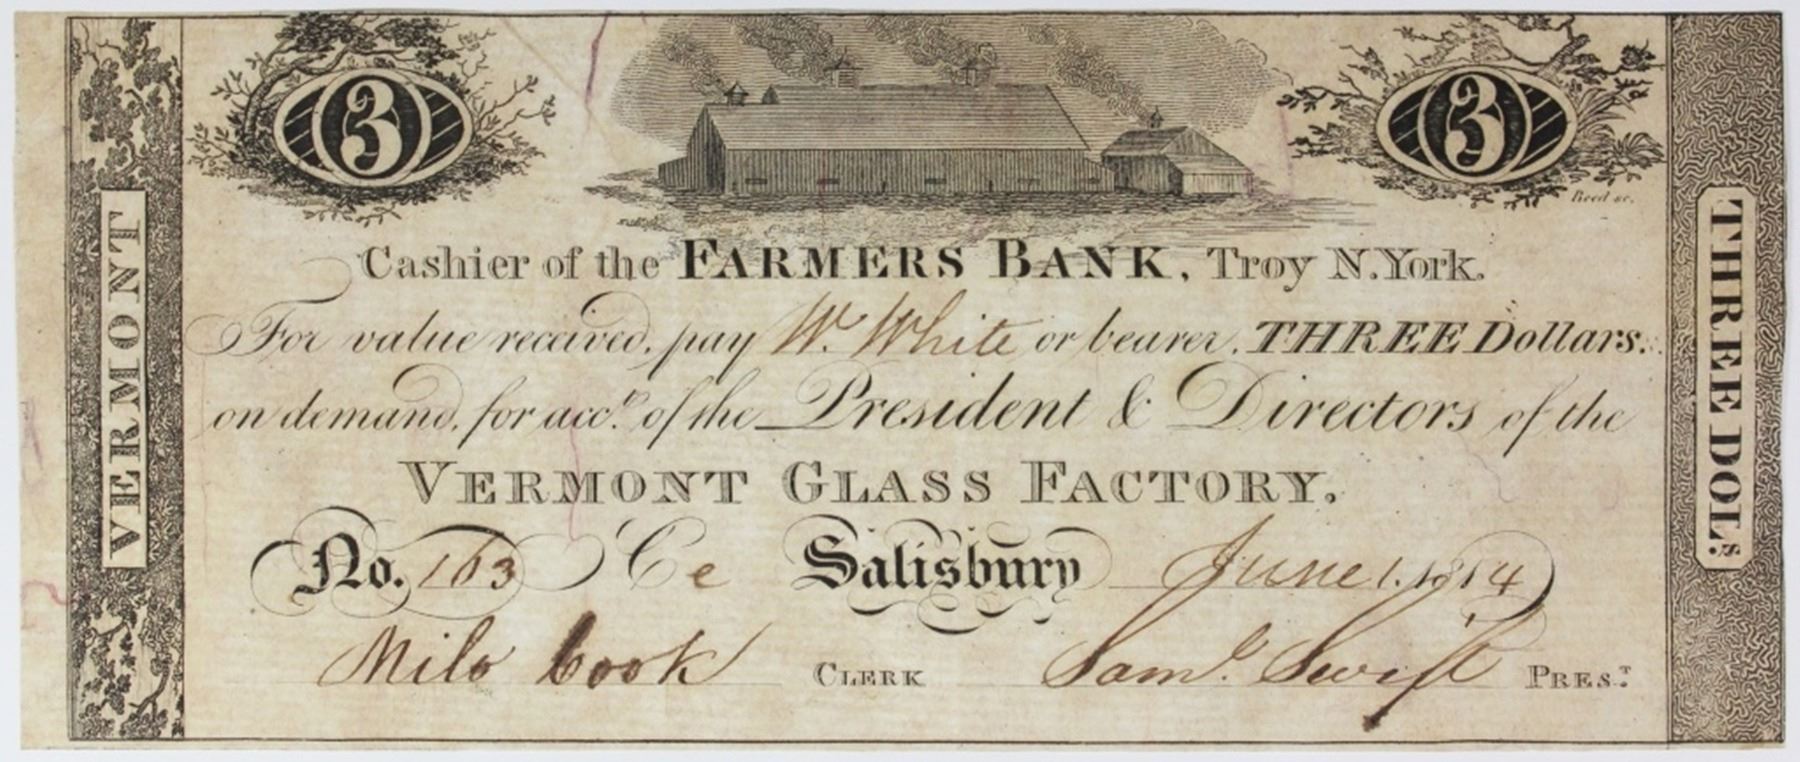 3
3
Reed sc.
VERMONT
THREE DOL.s
Cashier of the FARMERS BANK, Troy N.York.
For value received, pay W. White or bearer, THREE Dollars.
on demand, for acct. of the President & Directors of the
VERMONT GLASS FACTORY.
No. 163 C e Salisbury June 1. 1814
Milo Cook CLERK Saml. Swift PREST.